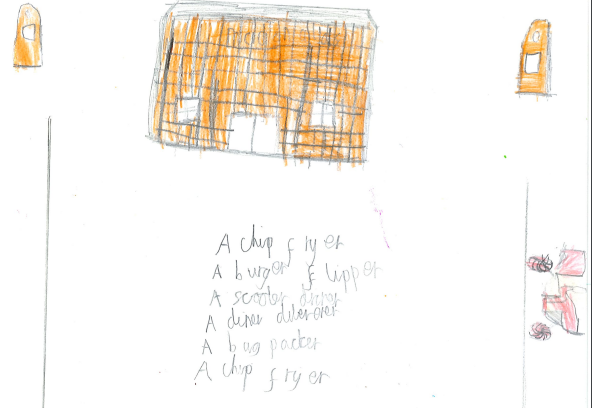 A chip fryer
A burger flipper
A scooter driver
A diner deliverer
A bag packer
A chip fryer